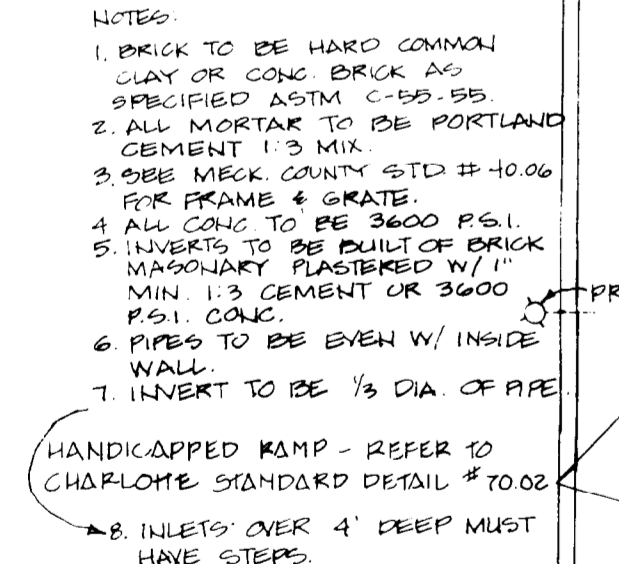 NOTES:
1. BRICK TO BE HARD COMMON
CLAY OR CONC. BRICK AS
SPECIFIED ASTM C-55-55.
2. ALL MORTAR TO BE PORTLAND
CEMENT 1:3 MIX.
3. SEE MECK. COUNTY STD. # 40.06
FOR FRAME & GRATE.
4 ALL CONC. TO BE 3600 P.S.I.
5. INVERTS TO BE BUILT OF BRICK
MASONARY PLASTERED W/ 1"
MIN. 1:3 CEMENT OR 3600
P.S.I. CONC.
PR
6. PIPES TO BE EVEN W/ INSIDE
WALL.
7. INVERT TO BE 1/3 DIA. OF PIPE.
HANDICAPPED RAMP - REFER TO
CHARLOTTE STANDARD DETAIL # 70.02
8. INLETS OVER 4' DEEP MUST
HAVE STEPS.